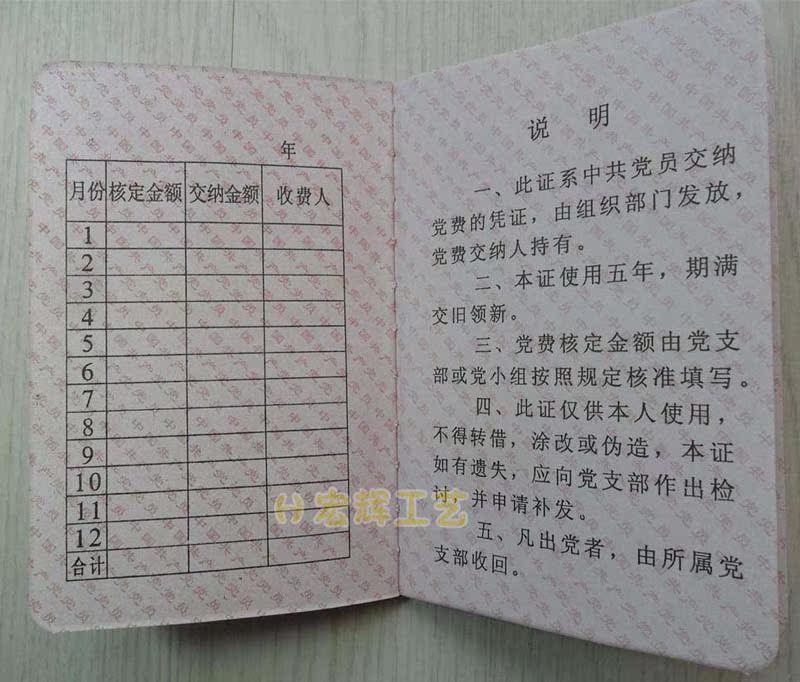 年
月份 核定金额 交纳金额 收费人
1
2
3
4
5
6
7
8
9
10
11
12
合计
说 明
一、此证系中共党员交纳
党费的凭证，由组织部门发放，
党费交纳人持有。
二、本证使用五年，期满
交旧领新。
三、党费核定金额由党支
部或党小组按照规定核准填写。
四、此证仅供本人使用，
不得转借，涂改或伪造，本证
如有遗失，应向党支部作出检
讨，并申请补发。
五、凡出党者，由所属党
支部收回。
宏辉工艺
中国共产党党员